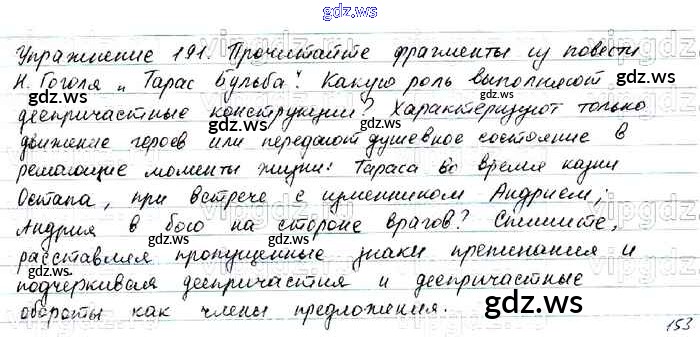 gdz.ws
Упражнение 191. Прочитайте фрагменты из повести
Н. Гоголя „Тарас Бульба". Какую роль выполняют
деепричастные конструкции? Характеризуют только
движение героев или передают душевное состояние в
решающие моменты жизни: Тараса во время казни
Остапа, при встрече с изменником Андрием;
Андрия в бою на стороне врагов? Спишите,
расставляя пропущенные знаки препинания и
подчеркивая деепричастия и деепричастные
обороты как члены предложения.
153